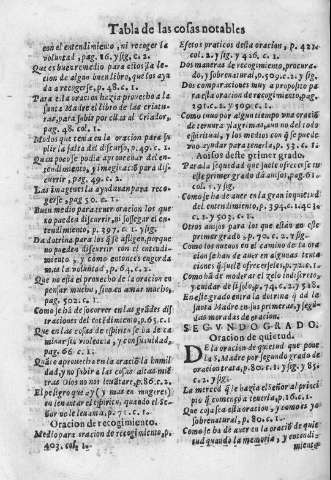 Tabla de las cosas notables
con el entendimiento, ni recoger la
voluntad, pag. 16. y sig. c. 2.
Que es buen remedio para estos la le-
cion de algun buen libro, que los ayu
da a recogerse, p. 48. c. 1.
Para esta oracion hazia prouecho a la
santa Madre el libro de las criatu-
ras, para subir por ellas al Criador,
pag. 48. col. 1.
Modos que tenia en la oracion para su
plir la falta del discurso, p. 49. c. 1.
Quien poco se podia aprouechar del en-
tendimiento, y imaginacion para dis-
currir, pag. 49. c. 2.
Las imagenes la ayudauan para recoge-
rse, pag. 50. c. 1.
Buen medio para tener oracion los que
no pueden discurrir, ni sossegar el en-
tendimiento, p. 397. c. 1. y sig.
Da dotrina para los que assi lleguen, porque
no pueden discurrir con el entendi-
miento, y como entonces engorda
mas la voluntad, p. 64. c. 2.
Que no està el prouecho de la oracion en
pensar mucho, sino en amar mucho,
pag. 502. c. 1.
Como se ha de socorrer en las grandes dis
traciones del entendimiento, p. 65. c. 1.
Que en las cosas de espiritu se ha de ca
minar con violencia, y con suauidad,
pag. 66. c. 1.
Quanto aprouecha en la oracion la humil
dad, y no subir a cosas altas mien
tras Dios no nos leuantare, p. 86. c. 2.
El peligro que ay (y mas en mugeres)
en leuantar el espiritu, quando el Se-
ñor no le leuanta, p. 71. c. 1.
Oracion de recogimiento.
Medio para oracion de recogimiento, p.
403. col. 1.
Efetos praticos desta oracion, p. 423.
col. 2. y 426. c. 1.
Dos maneras de recogimiento, procura-
do, y sobrenatural, p. 509. c. 2. y sig.
Dos comparaciones muy a proposito pa
ra esta oracion de recogimiento, pag.
291. c. 2. y 509. c. 1.
Como tuuo por algun tiempo vna oraciõ
de ternura y lagrimas, vno no del todo
espiritual, y los medios con que se puede
ayudar vno para tenerla, p. 53. c. 1.
Auisos deste primer grado.
Para la sequedad que suele ofrecerse en
este primer grado dà auisos, pag. 61.
col. 1. y sig.
Como se ha de auer en la gran inquietud
del entendimiento, p. 394. c. 1. 403.
c. 1. y 503. c. 1.
Otros auisos para los que estàn en este
primer grado, p. 70. c. 2. y sig.
Como los nueuos en el camino de la ora
cion se han de auer en algunas tenta
ciones que se les ofrecen, p. 72. c. 1.
Como ha de moderar el zelo indiscreto,
y nacido de si solo, p. 74. c. 2. y 528.
En este grado entra la dotrina que dà la
santa Madre en sus primeras, y segun
das moradas de oracion.
SEGVNDO GRADO.
Oracion de quietud.
DE la oracion de quietud que pone
la S. Madre por segundo grado de
oracion trata, p. 80. c. 1. y sig. y 85.
c. 2. y sig.
La merced que le hazia el Señor al princi
pio que comença a tenerla, p. 16. c. 1.
Que cosa sea esta oracion, y como es ya
sobrenatural, p. 80. c. 1.
Como se ha de auer en la oracion de quie
tud quando la memoria, y entendi-
miento